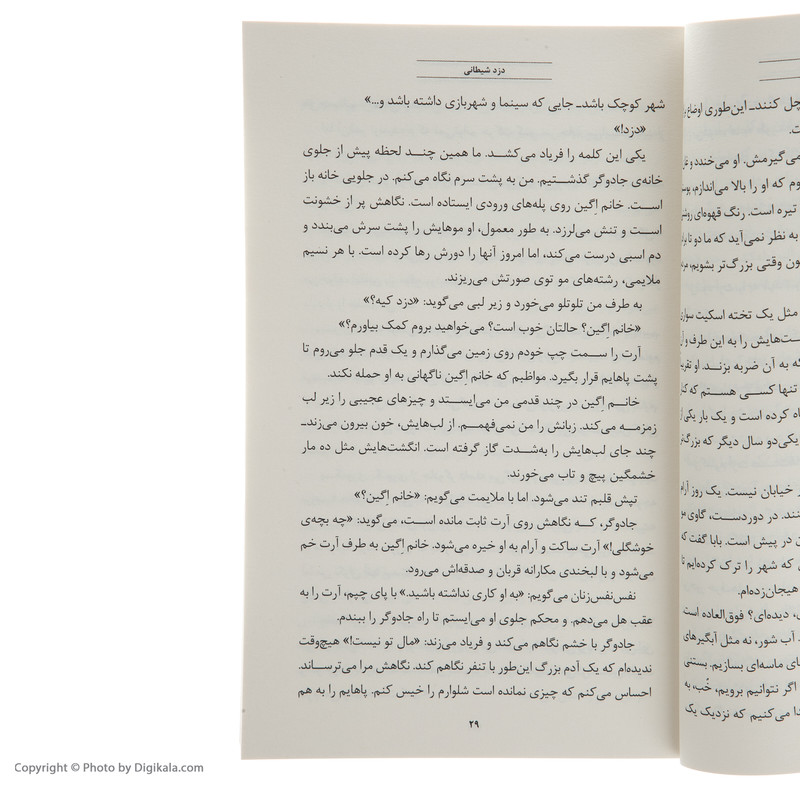 دزد شیطانی
شهر کوچک باشد ـ جایی که سینما و شهربازی داشته باشد و...»
«دزد!»
یکی این کلمه را فریاد می‌کشد. ما همین چند لحظه پیش از جلوی
خانه‌ی جادوگر گذشتیم. من به پشت سرم نگاه می‌کنم. در جلویی خانه باز
است. خانم اِگین روی پله‌های ورودی ایستاده است. نگاهش پر از خشونت
است و تنش می‌لرزد. به طور معمول، او موهایش را پشت سرش می‌بندد و
دم اسبی درست می‌کند، اما امروز آنها را دورش رها کرده است. با هر نسیم
ملایمی، رشته‌های مو توی صورتش می‌ریزند.
به طرف من تلوتلو می‌خورد و زیر لبی می‌گوید: «دزد کیه؟»
«خانم اِگین؟ حالتان خوب است؟ می‌خواهید بروم کمک بیاورم؟»
آرت را سمت چپ خودم روی زمین می‌گذارم و یک قدم جلو می‌روم تا
پشت پاهایم قرار بگیرد. مواظبم که خانم اِگین ناگهانی به او حمله نکند.
خانم اِگین در چند قدمی من می‌ایستد و چیزهای عجیبی را زیر لب
زمزمه می‌کند. زبانش را من نمی‌فهمم. از لب‌هایش، خون بیرون می‌زند ـ
چند جای لب‌هایش را به‌شدت گاز گرفته است. انگشت‌هایش مثل ده مار
خشمگین پیچ و تاب می‌خورند.
تپش قلبم تند می‌شود. اما با ملایمت می‌گویم: «خانم اِگین؟»
جادوگر، که نگاهش روی آرت ثابت مانده است، می‌گوید: «چه بچه‌ی
خوشگلی!» آرت ساکت و آرام به او خیره می‌شود. خانم اِگین به طرف آرت خم
می‌شود و با لبخندی مکارانه قربان و صدقه‌اش می‌رود.
نفس‌نفس‌زنان می‌گویم: «به او کاری نداشته باشید.» با پای چپم، آرت را به
عقب هل می‌دهم. و محکم جلوی او می‌ایستم تا راه جادوگر را ببندم.
جادوگر با خشم نگاهم می‌کند و فریاد می‌زند: «مال تو نیست!» هیچ‌وقت
ندیده‌ام که یک آدم بزرگ این‌طور با تنفر نگاهم کند. نگاهش مرا می‌ترساند.
احساس می‌کنم که چیزی نمانده است شلوارم را خیس کنم. پاهایم را به هم
۲۹
کنند ـ این‌طوری اوضاع
می‌گیرمش. او می‌خندد و
که او را بالا می‌اندازم،
تیره است. رنگ قهوه‌ای
به نظر نمی‌آید که ما دو تا
وقتی بزرگ‌تر بشویم،
مثل یک تخته اسکیت
را به این طرف و
به آن ضربه بزند. او
تنها کسی هستم که
کرده است و یک بار یکی
یکی‌دو سال دیگر که
خیابان نیست. یک روز
در دوردست، گاوی
در پیش است. بابا گفت که
که شهر را ترک کرده‌ایم تا
هیجان‌زده‌ام.
دیده‌ای؟ فوق‌العاده است
آب شور، نه مثل آبگیرهای
ماسه‌ای بسازیم. بستنی
اگر نتوانیم برویم، خُب، به
می‌کنیم که نزدیک یک
Copyright © Photo by Digikala.com